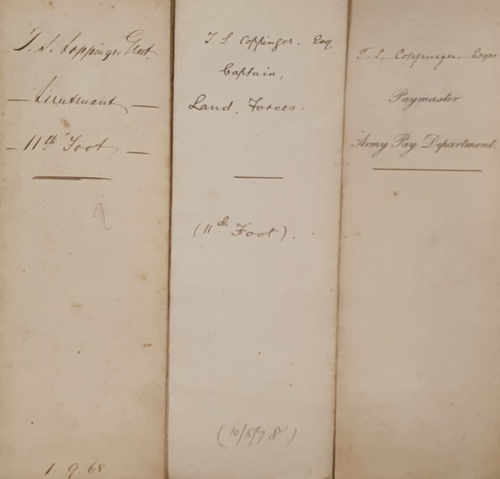 T. S. Coppinger Gent.
Lieutenant
11th Foot
1 . 9 . 68
T. S. Coppinger. Esq
Captain,
Land. Forces.
(11th Foot).
(10/5/78)
T. S. Coppinger. Esqre
Paymaster.
Army Pay Department.